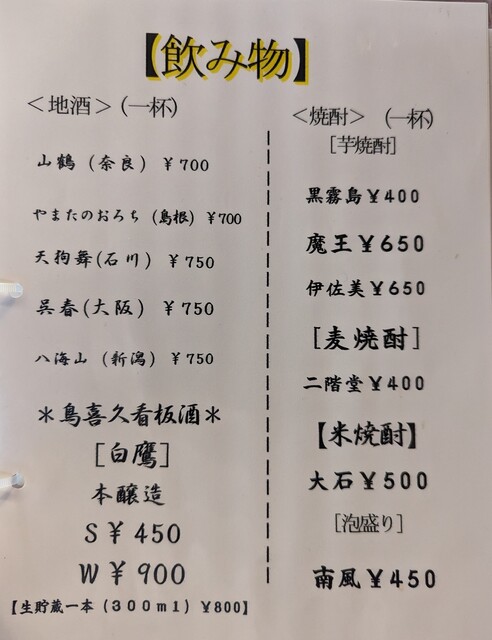 【飲み物】
＜地酒＞（一杯）
山鶴（奈良）￥700
やまたのおろち（島根）￥700
天狗舞（石川）￥750
呉春（大阪）￥750
八海山（新潟）￥750
＊鳥喜久看板酒＊
［白鷹］
本醸造
S￥450
W￥900
【生貯蔵一本（300ml）￥800】
＜焼酎＞（一杯）
［芋焼酎］
黒霧島￥400
魔王￥650
伊佐美￥650
［麦焼酎］
二階堂￥400
【米焼酎】
大石￥500
［泡盛り］
南風￥450